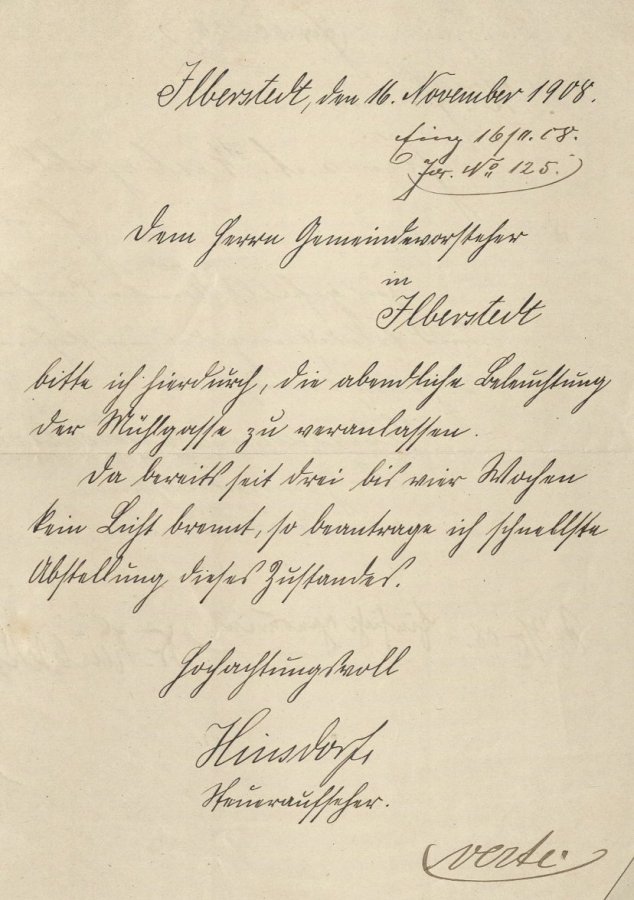 Ilberstedt, den 16. November 1908.
Eing 16/11. 08.
Jor. No 125.
Dem Herrn Gemeindevorsteher
in
Ilberstedt
bitte ich hierdurch, die abendliche Beleuchtung
der Mühlgasse zu veranlassen.
Da bereits seit drei bis vier Wochen
kein Licht brennt, so beantrage ich schnellste
Abstellung dieses Zustandes.
Hochachtungsvoll
Hinsdorf,
Steueraufseher.
verte.